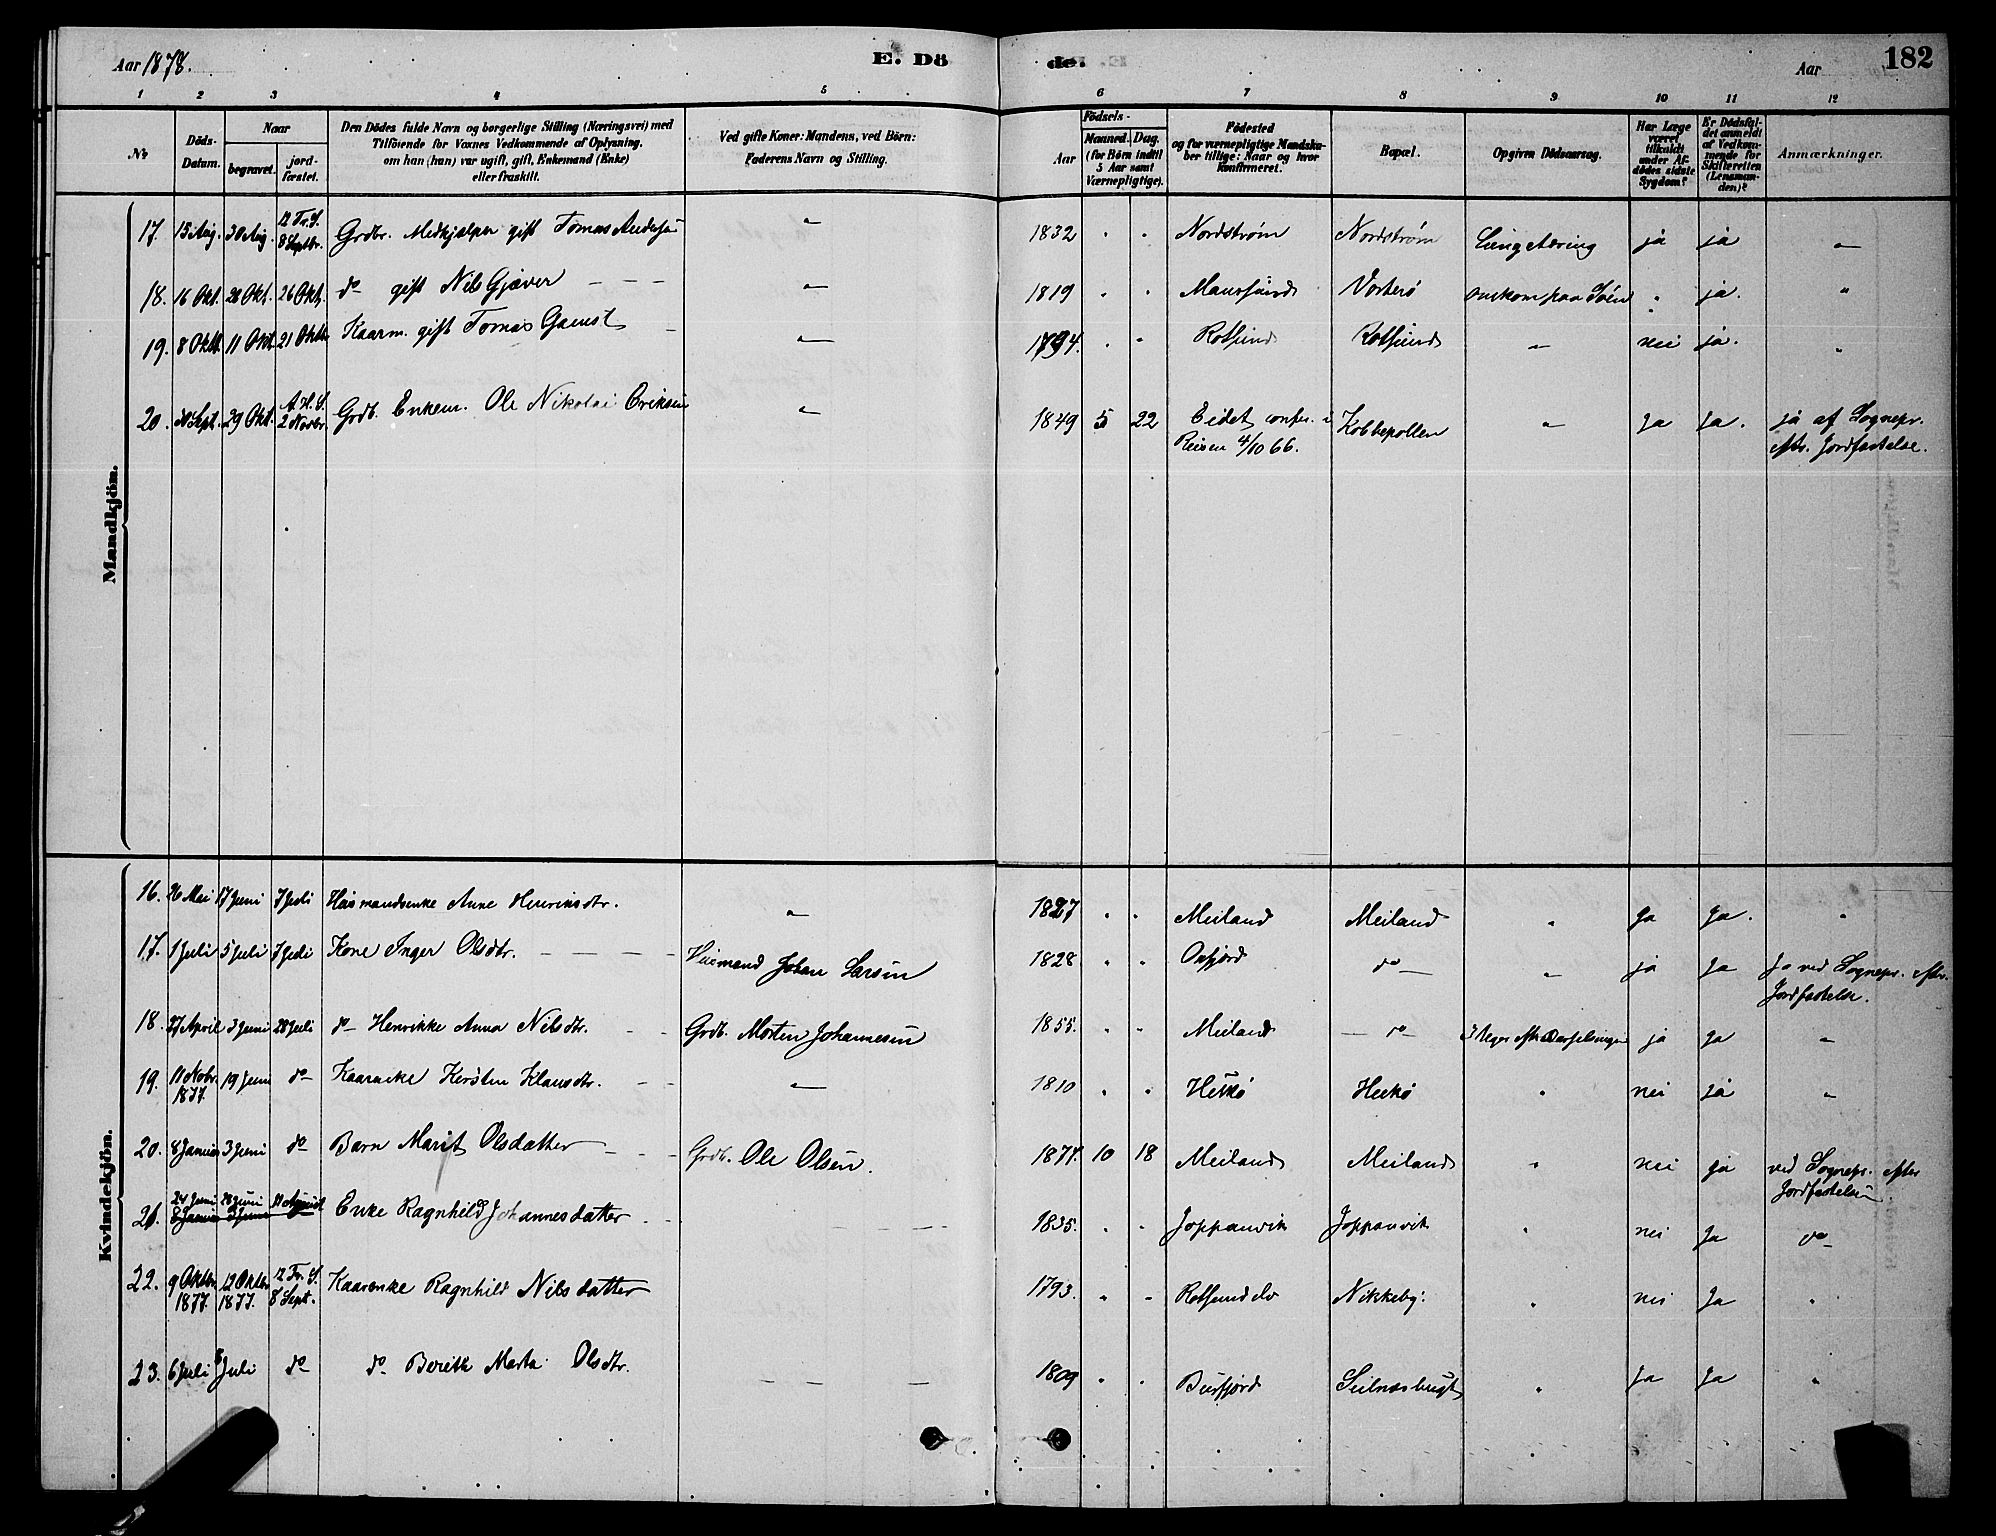 Aar 1878.
E. Dö
de.
Aar
182
1 2 3 4 5 6 7 8 9 10 11 12
No
Döds-Datum.
Naar
begravet.
jord-fæstet.
Den Dödes fulde Navn og borgerlige Stilling (Næringsvei) med
Tilföiende for Voxnes Vedkommende af Oplysning.
om han (hun) var ugift, gift, Enkemand (Enke)
eller fraskilt.
Ved gifte Koner: Mandens, ved Börn:
Faderens Navn og Stilling.
Födsels-
Aar
Maaned. Dag.
(for Börn indtil
5 Aar samt
Værnepligtige).
Födested
og for værnepligtige Mandska-
ber tillige: Naar og hvor
konfirmeret.
Bopæl.
Opgiven Dödsaarsag.
Har Læge
været
tilkaldt
under Af-
dödes sidste
Sygdom?
Er Dödsfal-
det anmeldt
af Vedkom-
mende for
Skifteretten
(Lensman-
den)?
Anmærkninger.
Mandkjön.
17. 15 Aug. 30 Aug. 12 Tr. S. 8 Septbr. Grdbr. Medhjælper gift Tomas Andersen " 1832 " " Nordstrøm Nordstrøm Lungetæring ja ja "
18. 16 Okt. 20 Okt. 26 Okt. do gift Nils Gjæver " 1819 " " Maursund Vorterø omkom paa Søen " ja. "
19. 8 Okt. 11 Okt. 21 Oktbr Kaarm. gift Tomas Gamst " 1794. " " Rotsund Rotsund " nei ja. "
20. Sept. 29 Okt. A. H. S. 2 Novbr. Grdb. Enkem. Ole Nikolai Eriksen " 1849 5 22 Eidet confir. i Reisen 4/10 66. Kobbepollen " Ja Ja. ja af Sognepr. eftr. Jordfæstelse.
Kvindekjön.
16. 26 Mai 17 Juni 7 Juli Husmandsenke Anne Henriksdtr. " 1827 " " Meiland Meiland " Ja Ja. "
17. 1 Juli 5 Juli 7 Juli Kone Inger Olsdtr. Huusmand Johan Larsen 1828 " " Oxfjord do " ja Ja Ja ved Sognepr. eftr. Jordfæstelse.
18. 27 April 3 Juni 28 Juli do Henrikke Anna Nilsdtr. Grdb. Morten Johannesen 1855. " " Meiland do 3 Uger eftr. Barselsengen ja Ja "
19. 11 Nobr. 1877. 19 Juni do Kaarenke Kersten Klausdtr. " 1810 " " Hukø Hukø " nei ja "
20. 8 Januar 3 Juni do Barn Marit Olsdatter Grdb. Ole Olsen. 1877. 10 18 Meiland Meiland " nei ja ved Sognepr. efter Jordfæstelsen
21. 24 Juni 28 Juni 11 August Enke Ragnhild Johannesdatter 1835. " " Joppanvik Joppanvik " nei Ja do
8 Januar 3 Juni
22. 9 Oktbr. 1877. 12 Oktbr 1877. 12 Tr. S. 8 Sept. Kaarenke Ragnhild Nilsdatter 1793. " " Rotsundelv Nikkeby. " nei Ja "
23. 6 Juli 8 Juli do do Berith Marta Olsdtr. 1809 " " Burfjord Seilnæsbugt " Ja Ja "